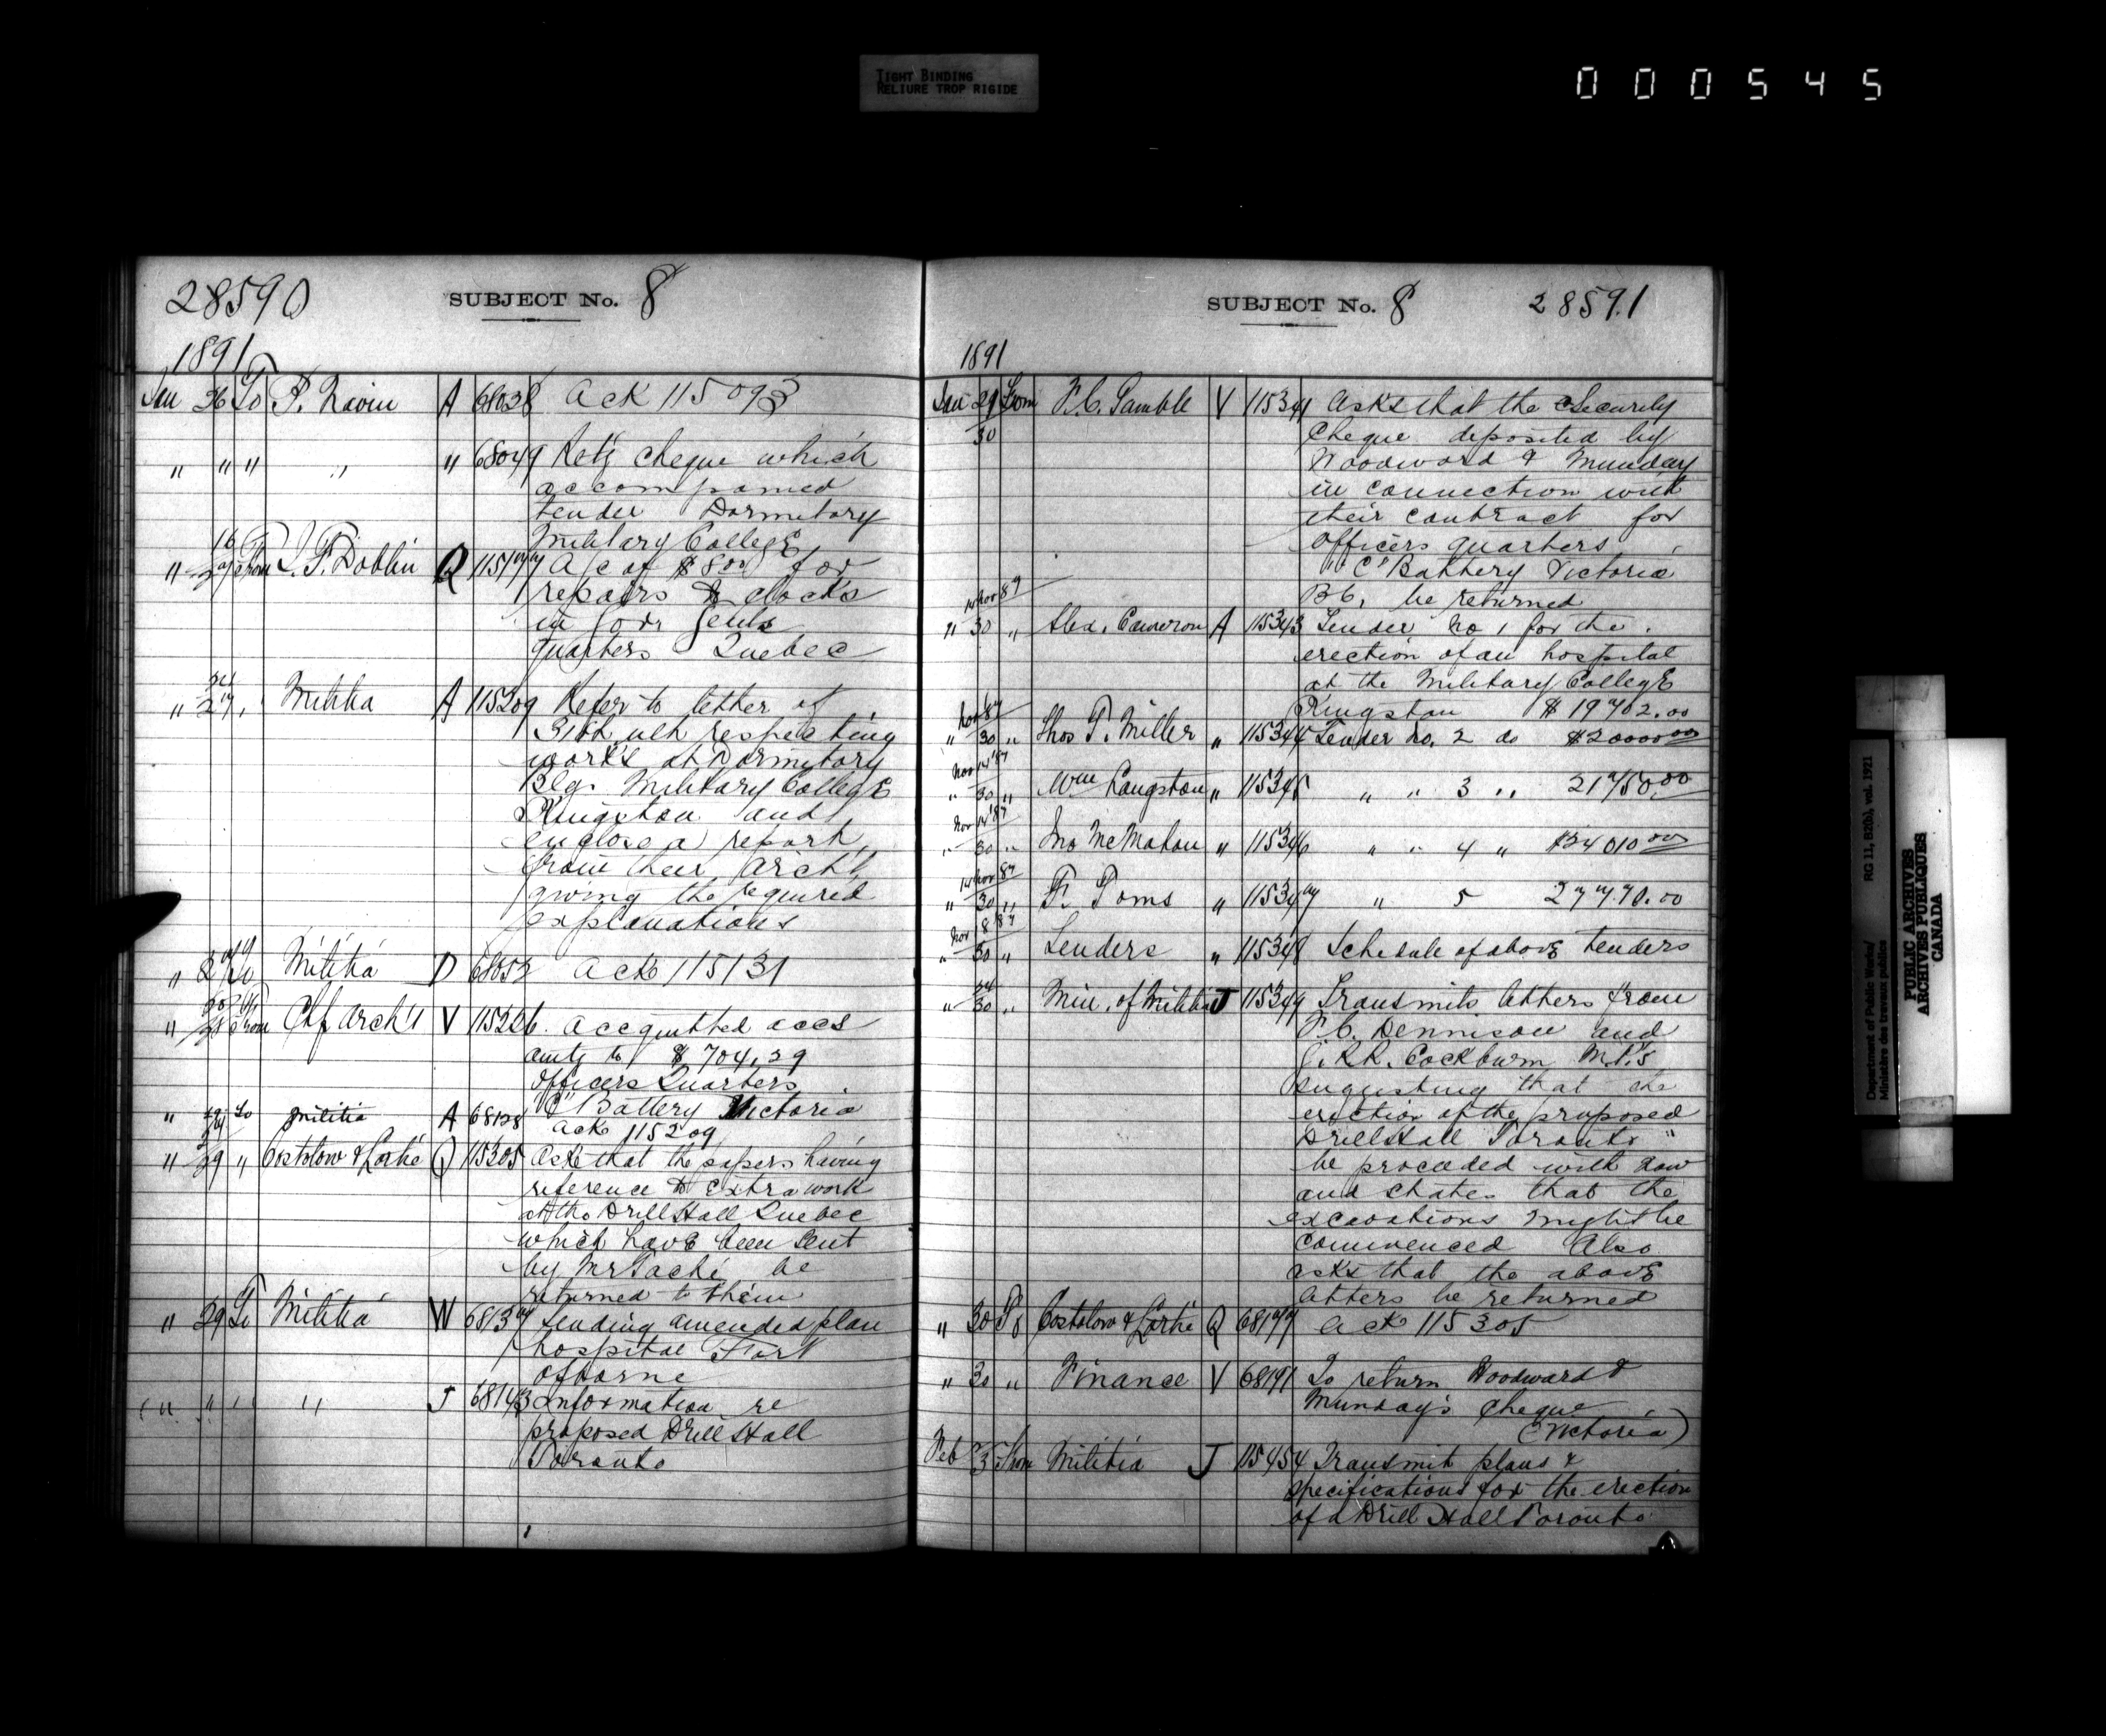 TIGHT BINDING
RELIURE TROP RIGIDE
000545
28590 SUBJECT No. 8
1891
Jan 26 To P. Navin A 68038 Ack 115093
" " " " " 68049 Retg cheque which
accompanied
tender Dormitory
Military College
" 16/27 From J. F. Dobbin Q 115177 A/c of $8.00 for
repairs to clocks
in Govr Genls
quarters Quebec
" 24/27 " Militia A 115209 Refer to letter of
ult respecting
works at Dormitory
Blg. Military College
Kingston and
enclose a report
from their Archt
giving the required
explanations
" 27 To Militia D 68052 Ack 115131
" 28 From Chf Arch't V 115226 Accquitted accs
amtg to $704.29
Officers Quarters
"C" Battery Victoria
" 29 To Militia A 68128 Ack 115209
" 29 " Costolow & Lortie Q 115305 Ask that the papers having
reference to extra work
at the Drill Hall Quebec
which have been sent
by Mr Taché be
returned to them
" 29 To Militia W 68137 Sending amended plan
hospital Fort
Osborne
" " " " J 68143 Information re
proposed Drill Hall
Toronto
SUBJECT No. 8 28591
1891
Jan 29/30 From F. C. Gamble V 115341 Asks that the Security
Cheque deposited by
Woodward & Munday
in connection with
their contract for
Officers quarters
"C" Battery Victoria
B.C. be returned
14 Nov 87
" 30 " Alex. Cameron A 115343 Tender No 1 for the
erection of an hospital
at the Military College
Kingston $19702.00
Nov 87
" 30 " Thos T. Miller " 115344 Tender No. 2 do $20000.00
Nov 14 '87
" 30 " Wm Langston " 115345 " " 3 " 21750.00
Nov 14 '87
" 30 " Jno McMahon " 115346 " " 4 " $24010.00
14 Nov 87
" 30 " F. Toms " 115347 " 5 27770.00
Nov 18 '87
" 30 " Tenders " 115348 Schedule of above tenders
" 24/30 " Min. of Militia J 115349 Transmits letters from
F. C. Dennison and
G. R.R. Cockburn M.P.'s
suggesting that the
erection of the proposed
Drill Hall Toronto "
be proceeded with now
and states that the
excavations might be
commenced Also
asks that the above
letters be returned
" 30 To Costolow & Lortie Q 68177 Ack 115305
" 30 " Finance V 68191 To return Woodward &
Munday's Cheque
(Victoria)
Feb 3 From Militia J 115454 Transmit plans &
specifications for the erection
of a Drill Hall Toronto
Department of Public Works/ RG 11, B2(b), vol. 1921
Ministère des travaux publics
PUBLIC ARCHIVES
ARCHIVES PUBLIQUES
CANADA